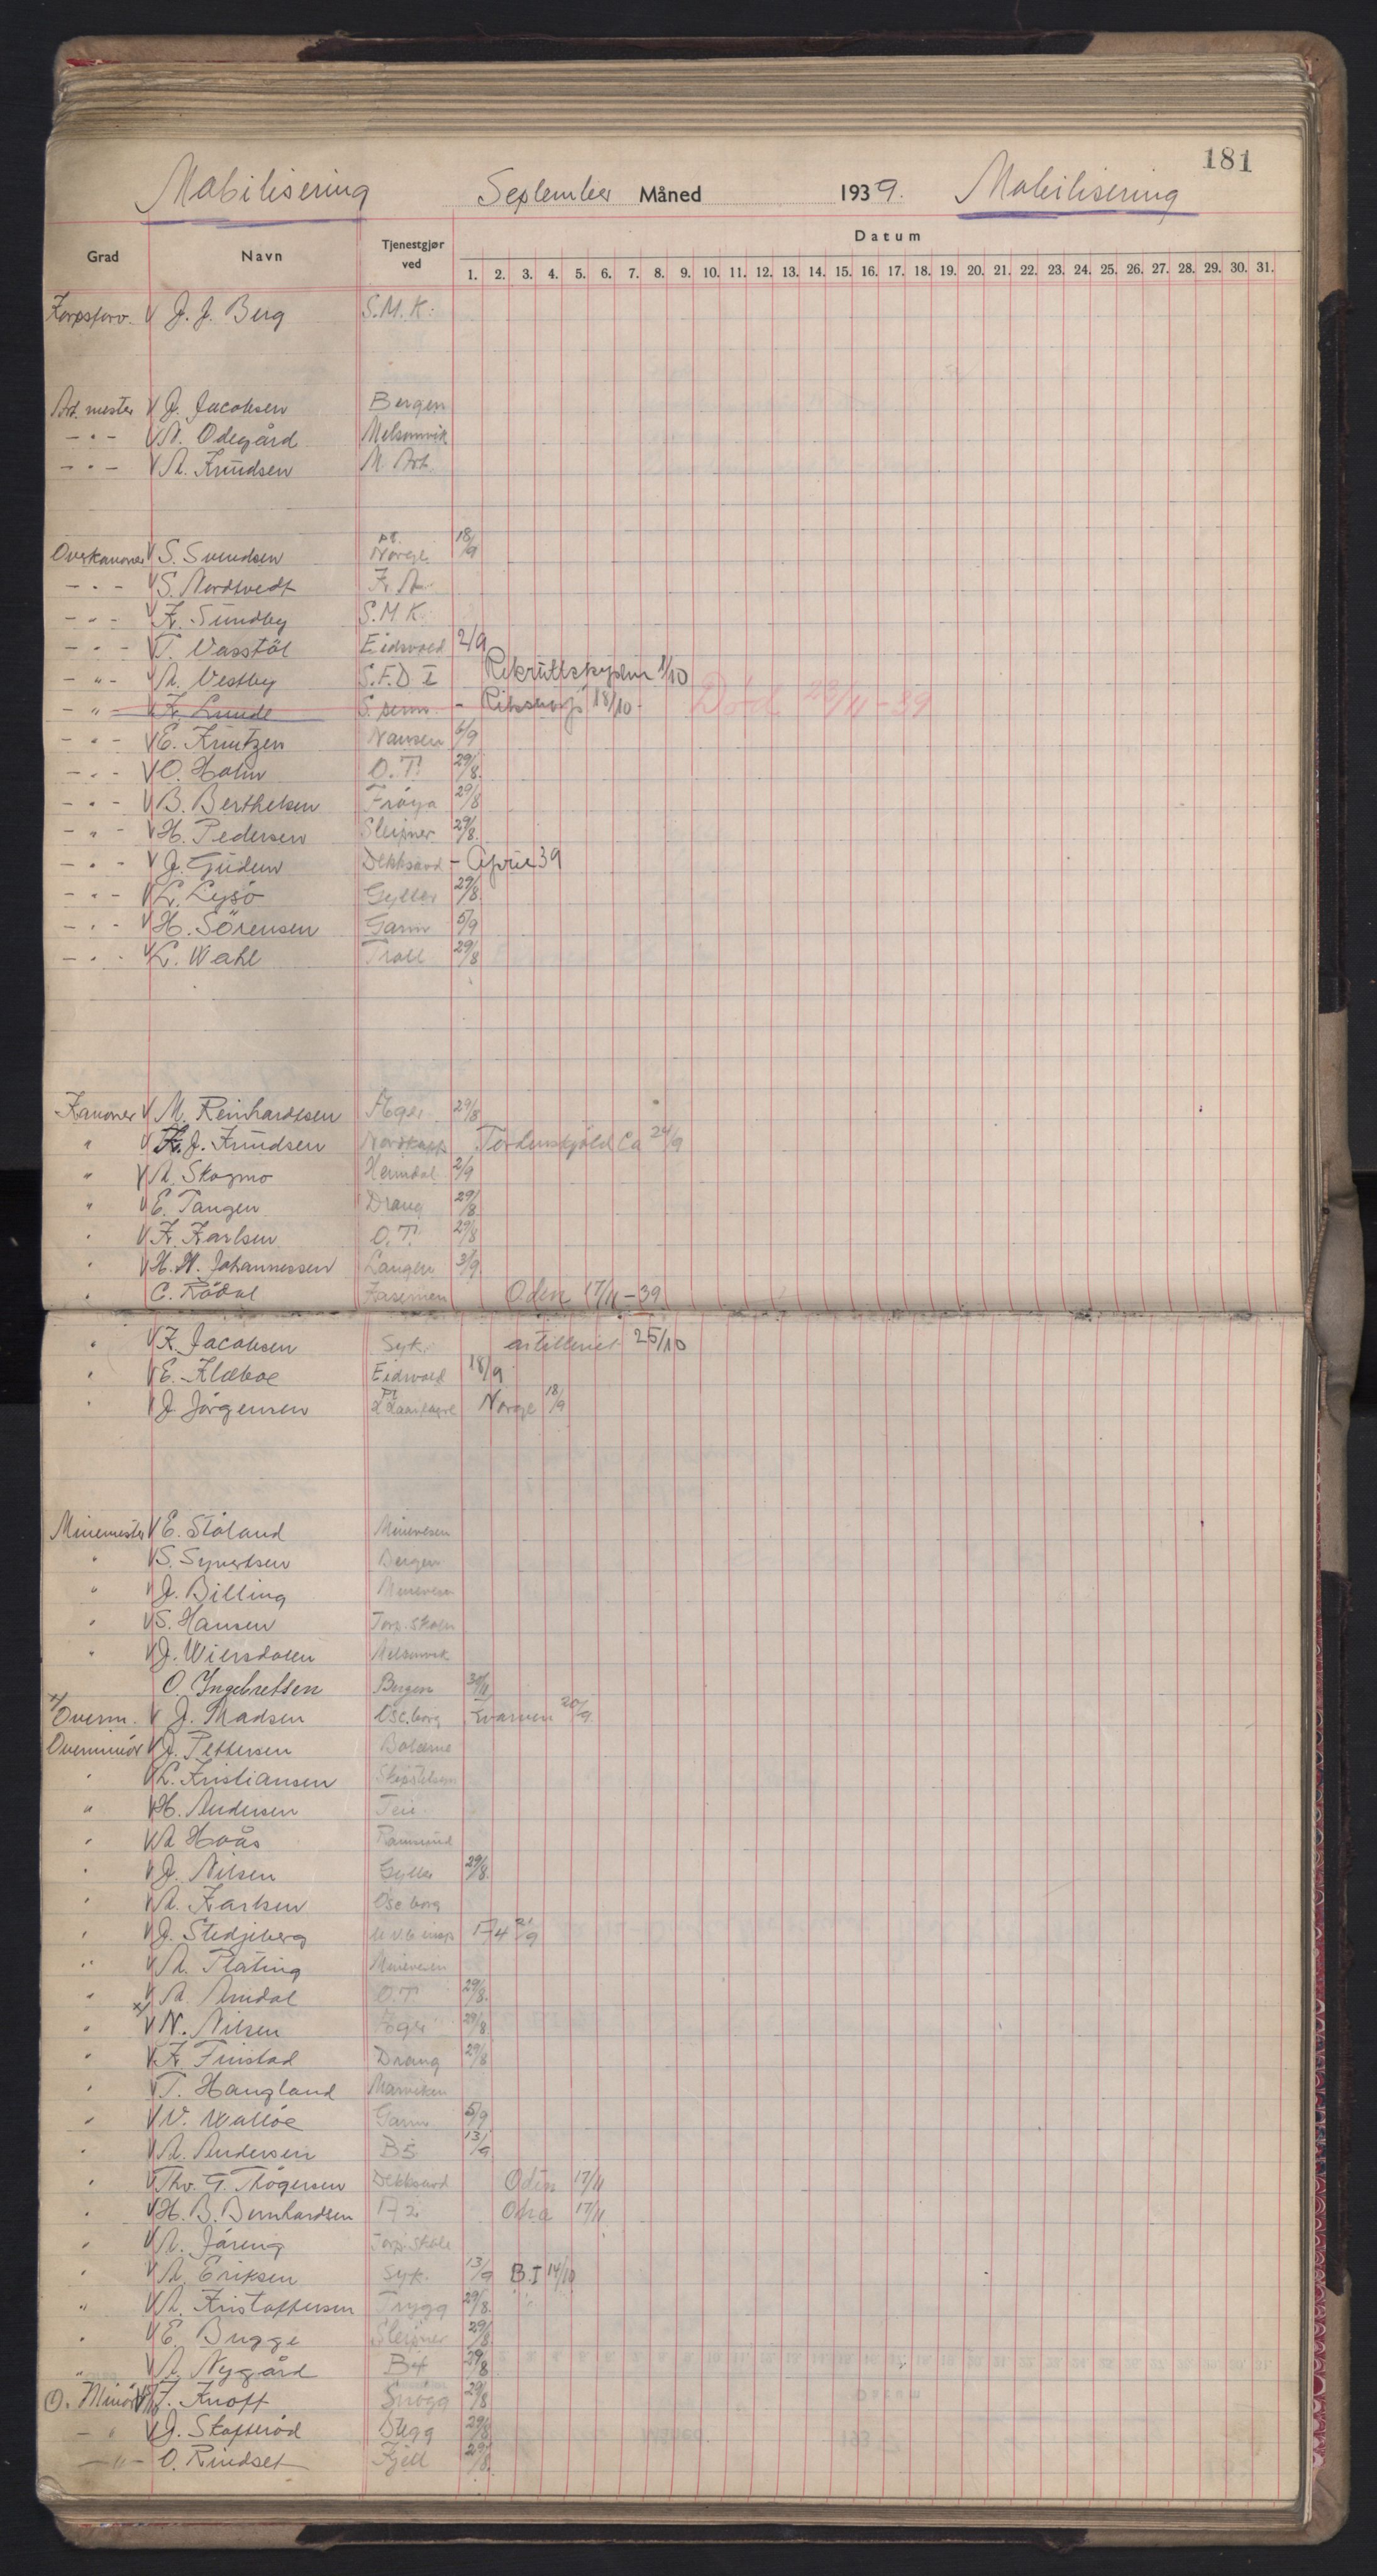 181
Mobilisering September Måned 1939. Mobilisering
Grad Navn Tjenestgjør ved Datum
1. 2. 3. 4. 5. 6. 7. 8. 9. 10. 11. 12. 13. 14. 15. 16. 17. 18. 19. 20. 21. 22. 23. 24. 25. 26. 27. 28. 29. 30. 31.
Korpsforv. V J. J. Berg S.M.K.
Art. mester V J. Jacobsen Bergen
- " - V A. Odegård Melsomvik
- " - V A. Knudsen M. Art.
Overkanoner V S. Svendsen pt. Norge 18/9
- " - V S. Nordtvedt K. A.
- " - V K. Sundby S.M.K.
- " - V T. Vasstöl Eidsvold 2/9
- " - V A. Vestby S.F.D I 1/10
- " - V K. Lunde S. perm. - 18/10- Död 23/11-39
- " - V E. Knutzen Nansen 6/9
- " - V O. Holm O.T. 29/8.
- " - V B. Berthelsen Fröya 29/8
- " - V H. Pedersen Sleipner 29/8.
- " - V J. Gudem Dekksavd - April 39
- " - V L. Lysö Gyller 29/8
- " - V H. Sörensen Garm 5/9
- " - V L. Wahl Troll 29/8
Kanoner V M. Reinhardtsen Æger 29/8
" V K. J. Knudsen Nordkapp Tordenskjold Ca 24/9
" V A. Skogmo Heimdal 2/9
" V E. Tangen Draug 29/8
" V K. Karlsen O.T. 29/8
" V H. W. Johannessen Laugen 3/9
" C. Rödal Kasernen Odin 17/11-39
" V K. Jacobsen Syk. artilleriet 25/10
" V E. Klæboe Eidsvold 18/9
" V J. Jörgensen Norge 18/9
Minemester V E. Stöland Minevesen
" V S. Syvertsen Bergen
" V J. Billing Minevesen
" V S. Hansen Torp. skolen
" V J. Wiersdalen Melsomvik
O. Ingebretsen Bergen
x/ Overm. V J. Madsen Osc.borg Kvarven 20/9.
Overminör V J. Pettersen Bolærne
" V L. Kristiansen
" V H. Andersen Teie
" V A Hoås Ramsund
" V J. Nilsen Gyller 29/8.
" V A. Karlsen Osc.borg
" V J. Stedjeberg 21/9
" V A. Plating Minevesen
" V A. Amdal O.T 29/8.
" x/ V N. Nilsen Æger 29/8.
" V K. Finstad Draug 29/8
" V T. Haugland Marviken
" V V. Walløe Garm 5/9
" V A. Andersen B5 13/9
" V Thv. G. Thögersen Dekksavd Odin 17/11
" V H. B. Bernhardsen 17/11
" V A. Jåreng Torp. skole
" V A. Eriksen Syk. 13/9 B.I 14/10
" V A. Kristoffersen Trygg 29/8.
" V E. Bugge Sleipner 29/8
" V A. Nygård 29/8
O. Minör V J. Knoff Snögg 29/8
- " V J. Skofteröd Stegg 29/8
- " - O. Rindset Kjell 29/8.